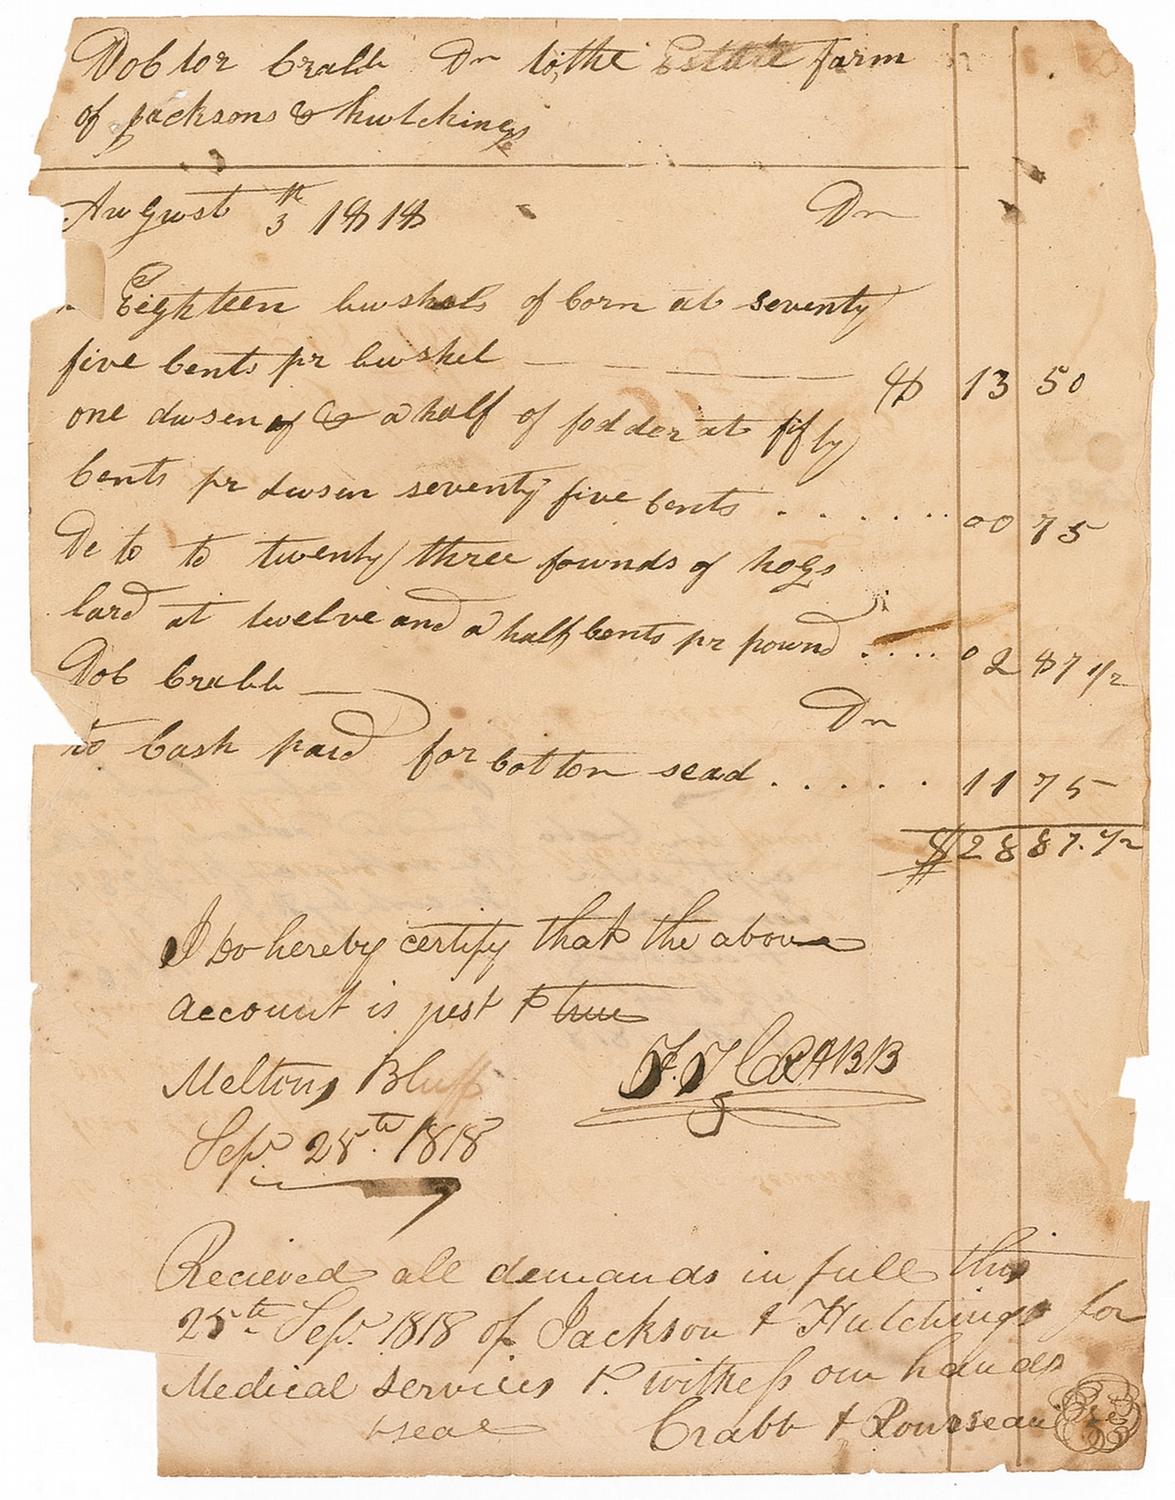 Doctor Crabb Dr to the Estate farm
of Jacksons & Hutchings
August 3th 1818 Dr
Eighteen bushels of Corn at seventy
five Cents pr bushel $ 13 50
one dusen of & a half of fodder at fifty
Cents pr dusen seventy five Cents . . . . . . 00 75
De to to twenty three pounds of hogs
lard at twelve and a half Cents pr pound . . . . 02 87 1/2
Doc Crabb Dr
to Cash paid for Cotton sead . . . . . . 11 75
$28 87.1/2
I Do hereby certify that the above
account is just & true
Meltons Bluff F. F. CRABB
Sepr. 25th. 1818
Recieved all demands in full this
25th. Sepr. 1818 of Jackson & Hutchings for
Medical services &. witness our hands
& seal Crabb & Rousseau